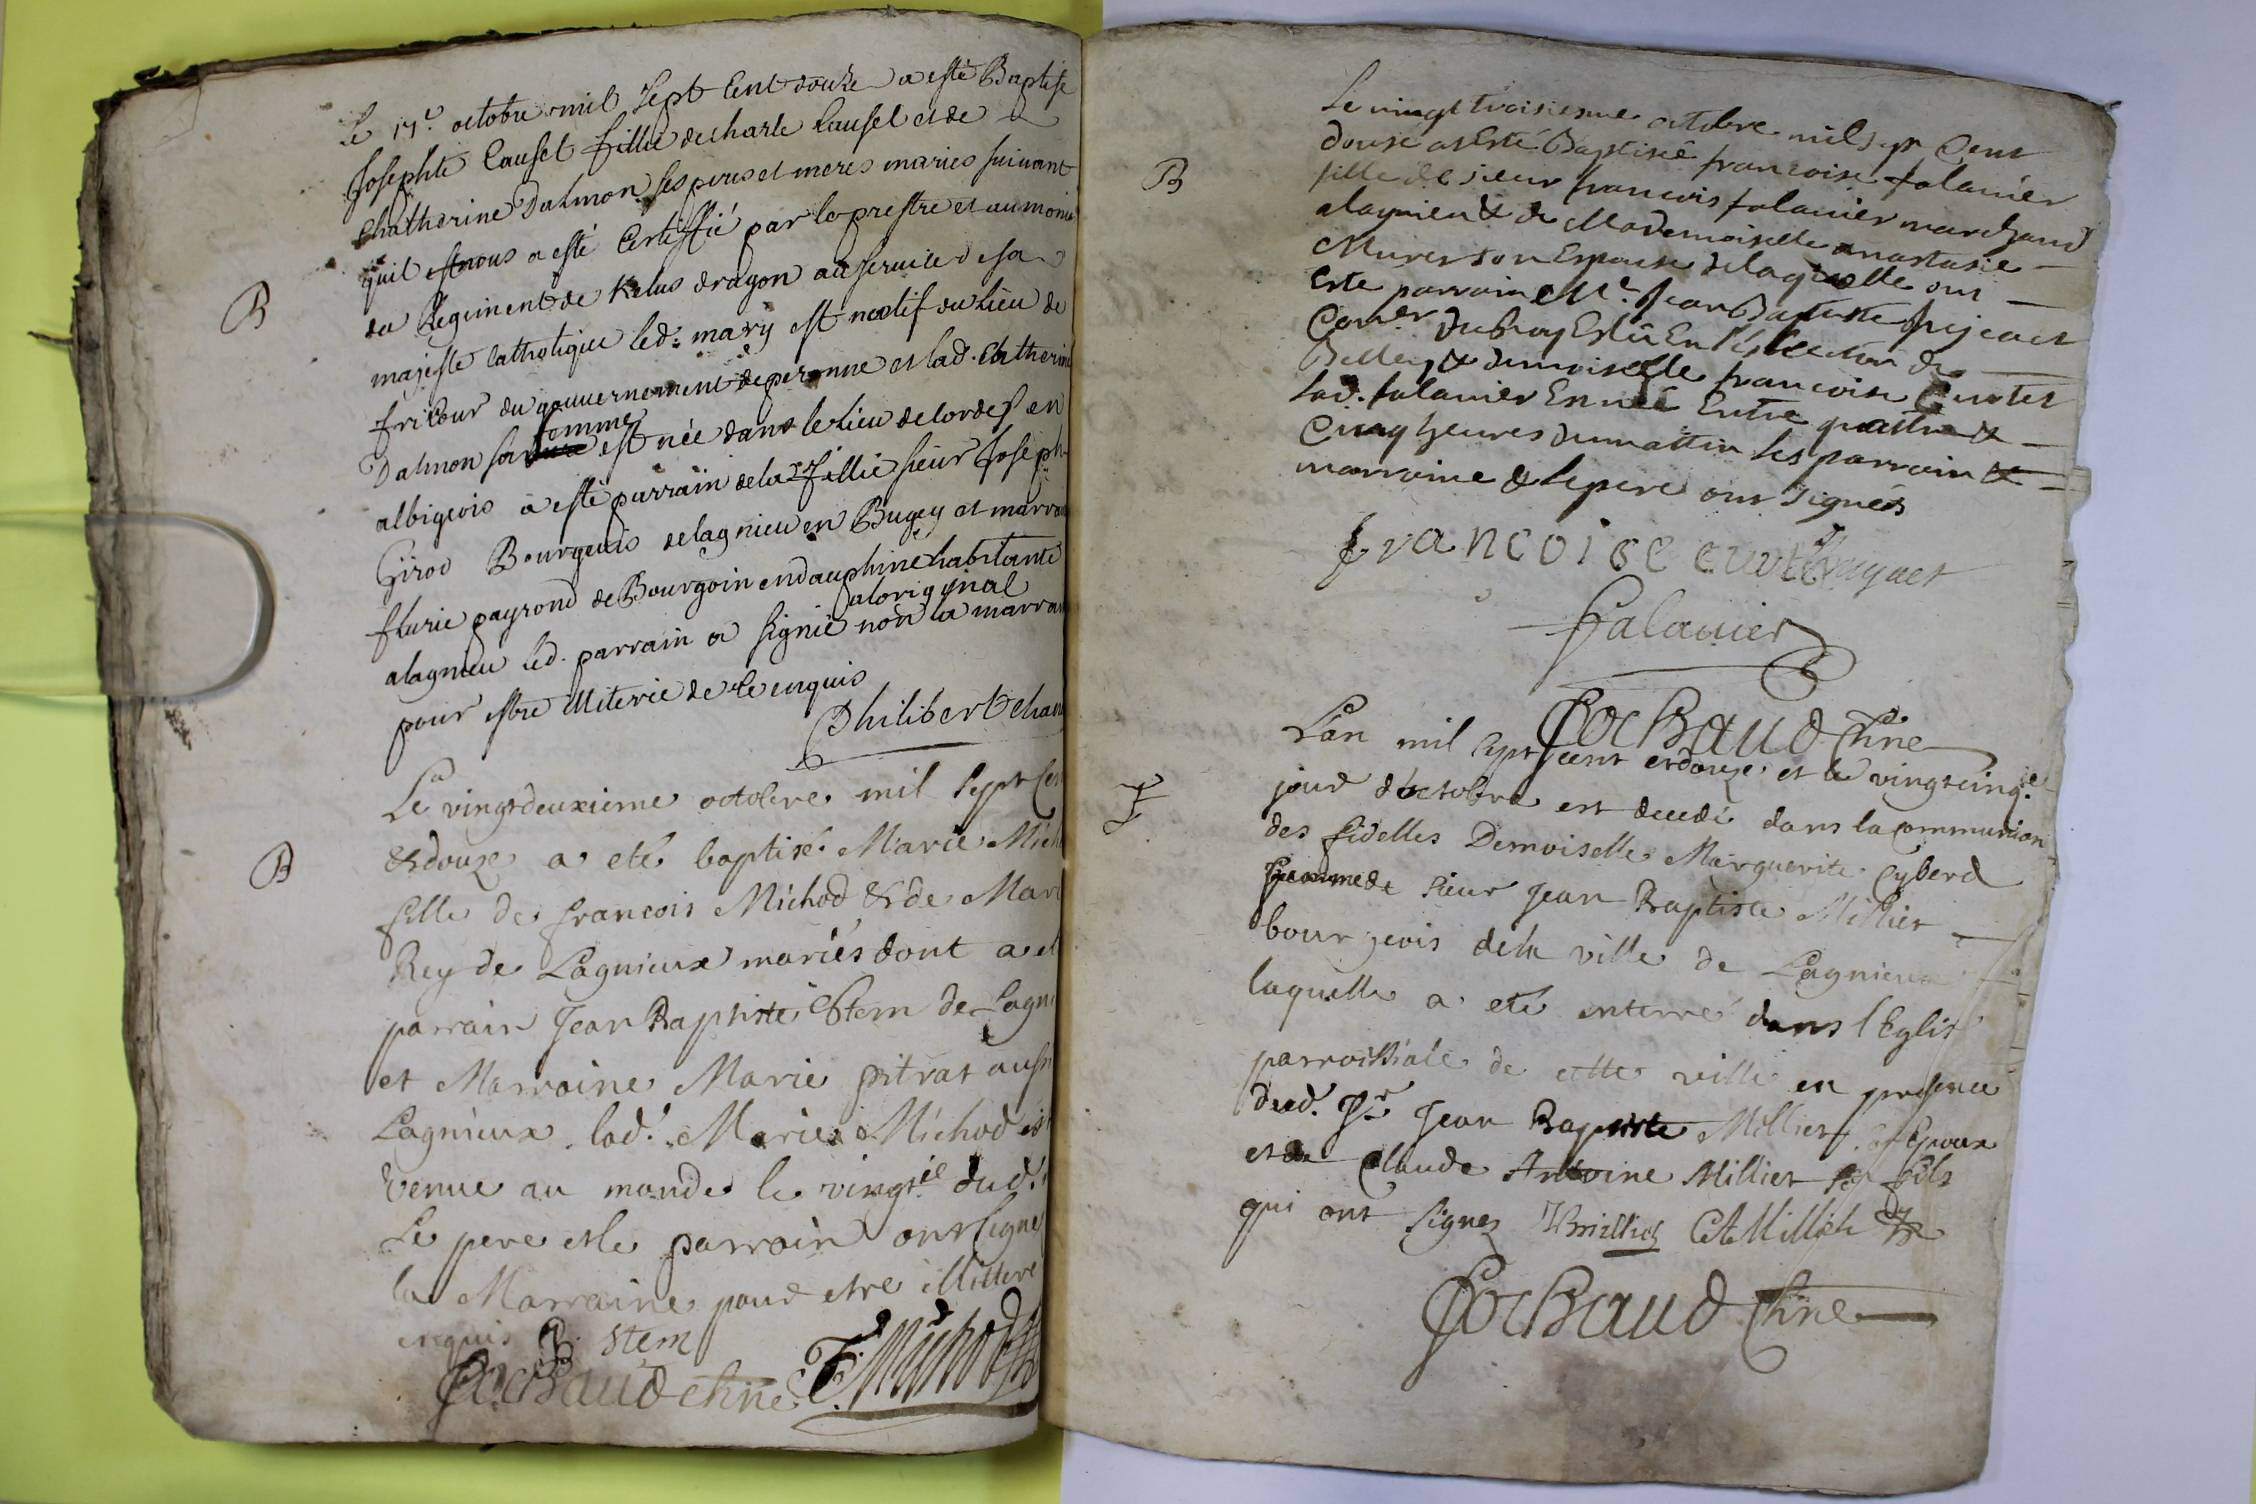 Le 17e. octobre mil Sept Cent douze a esté Baptise
Josephte Causel fillie de charle Causel et de
Chatherine Dalmon ses peres et meres mariés suivant
quil nous a esté Certiffié par le prestre et aumonie
du Regiment de Kelus dragon au service de sa
majesté Catholique led: mary est natif du Lieu de
fricour du gouvernement de peronne et lad. Chatherine
femme
Dalmon sa est née dans le Lieu de Cordes en
albigeois a esté parrain de la fillie sieur Joseph
Girod Bourgeois de lagnieu en Bugey et marra
flurie payrond de Bourgoin en dauphiné habitante
aloriginal
a lagnieu led. parrain a signié non la marra
pour estre illiterie de ce enquis
Philibert chan
B
Le vingtdeuxieme octobre mil Sept Cen
et douze a eté baptisé Marie Mich
fille de francois Michod et de Mari
Rey de Lagnieux mariés dont a et
parrain Jean Baptiste Stem de Lagni
et Marraine Marie pitrat aussi
Lagnieux lad. Marie Michod est
Venue au monde le vingtie dud.
Le pere et le parrain ont signé
la Marraine pour etre illitere
enquis B. Stem
Cochaud Chne F. Michod
B
Le vingt troisiesme octobre mil sept Cent
douse at Esté Baptiseé francoise falauier
fille de sieur francois falauier marchand
a lagnieu & de Mademoiselle anastasie
Murer son Espouse de laquelle ont
Este parrain Mr. Jean Baptiste
Coner du Roy Eslû En l'Election de
Belley & demoiselle francoise Cuvtet
lad. falauier Ennéé Entre quattre &
Cinq heures du mattin les parrain &
marraine & le pere ont signés
B
francoise cuvtet
falauier
Cochaud Chne
L'an mil sept cent et douze et le vingt cinqe
jour d'octobre est decedé dans la Communion
des fidelles Demoiselle Marguerite Cyberd
femme de sieur Jean Baptiste Millier
bourgeois de la ville de Lagnieux
laquelle a eté enterré dans l'Eglise
parroissiale de cette ville en presence
dud. Sr Jean Baptiste Millier son Epoux
et de Claude Antoine Millier son fils
qui ont signez JBmillier CAMillier
Cochaud Chne